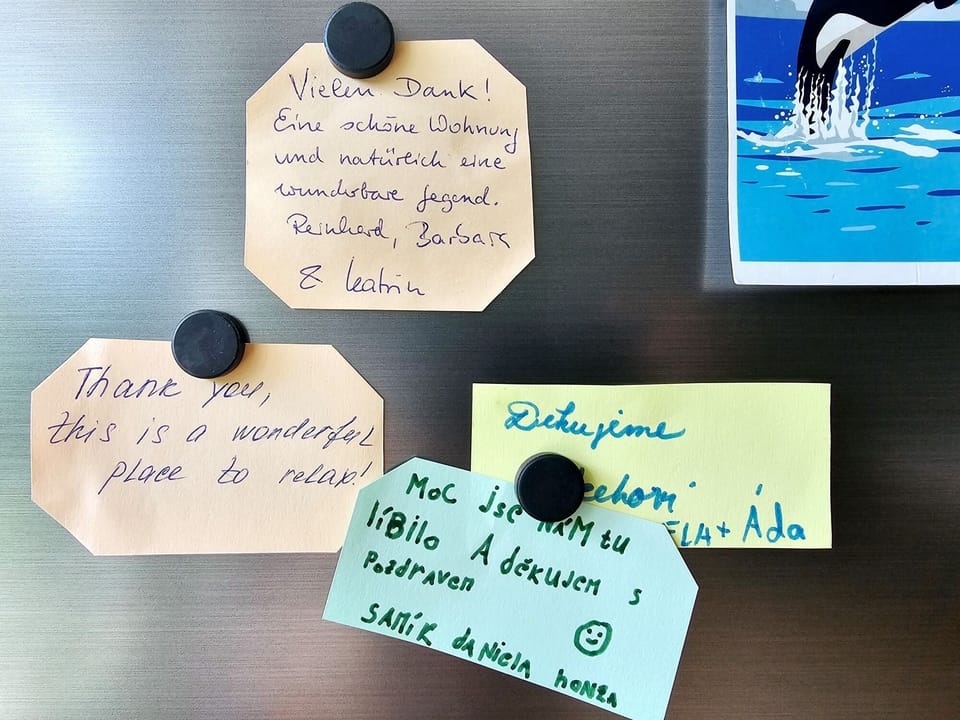 Vielen Dank!
Eine schöne Wohnung
und natürlich eine
wunderbare Gegend.
Reinhard, Barbara
& Katrin
Thank you,
this is a wonderful
place to relax!
Děkujeme
Áda
Moc jse NÁM tu
líBilo A děkujem s
Pozdravem
SAMÍK daNiela hoNzA